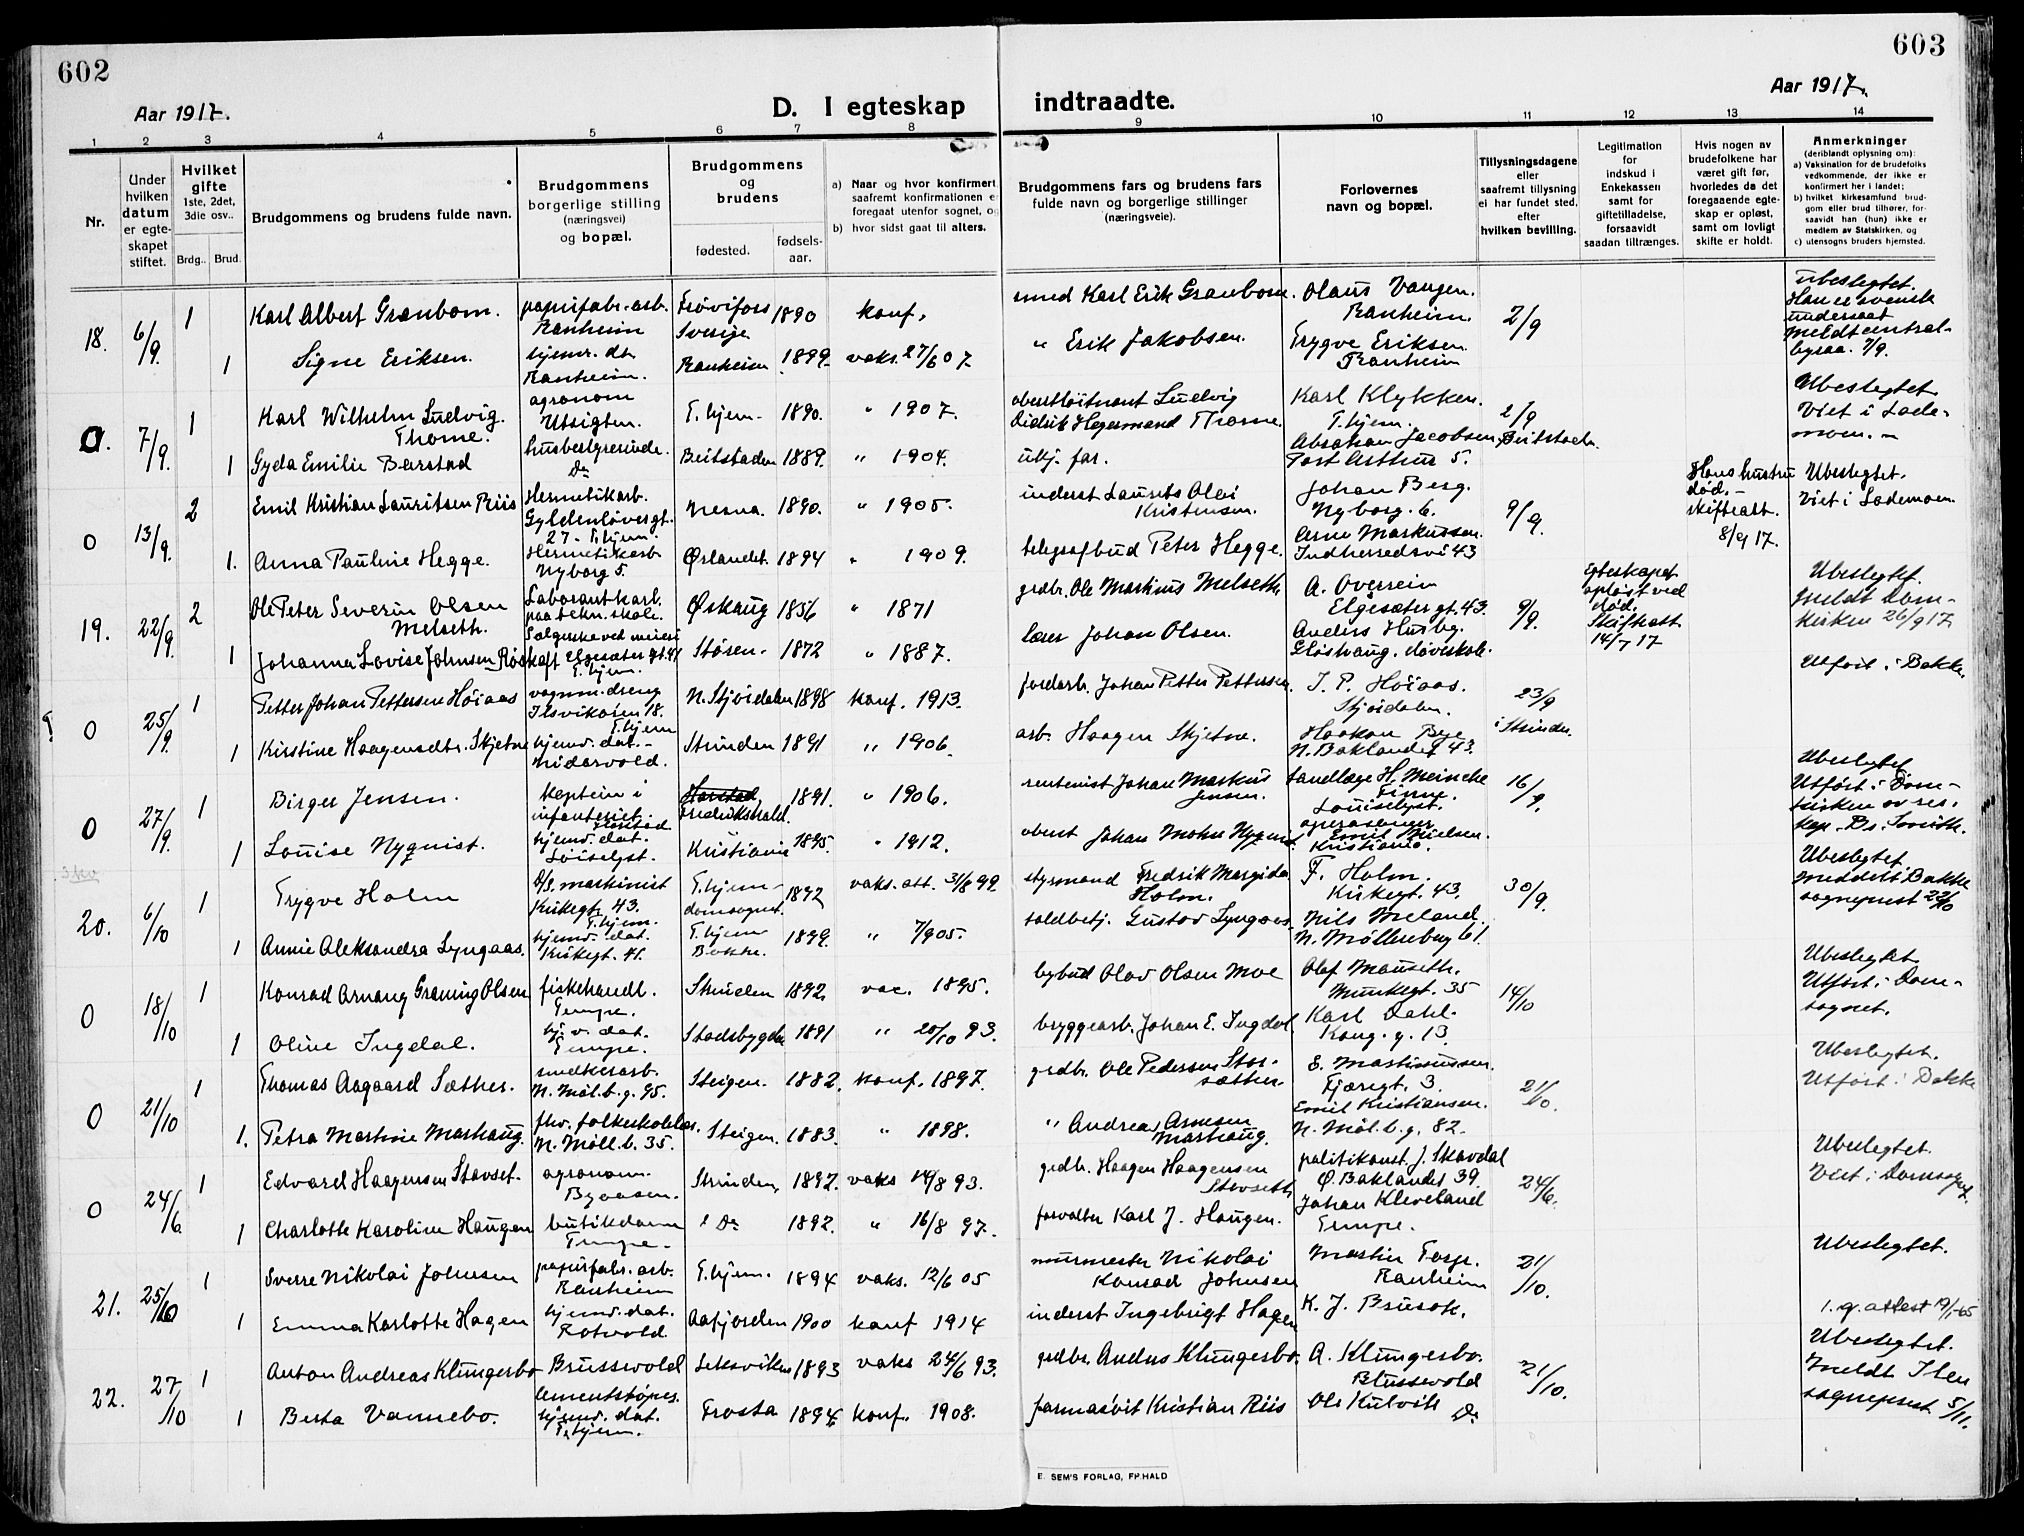 602
603
Aar 1917.
D. I egteskap
indtraadte.
Aar 1917.
1 2 3 4 5 6 7 8 9 10 11 12 13 14
Nr.
Under hvilken datum er egte-skapet stiftet.
Hvilket gifte 1ste, 2det, 3die osv..
Brdg.. Brud.
Brudgommens og brudens fulde navn.
Brudgommens borgerlige stilling (næringsvei) og bopæl.
Brudgommens og brudens
fødested.
fødsels-aar.
a) Naar og hvor konfirmert, saafremt konfirmationen er foregaat utenfor sognet, og
b) hvor sidst gaat til alters.
Brudgommens fars og brudens fars fulde navn og borgerlige stillinger (næringsveie).
Forlovernes navn og bopæl.
Tillysningsdagene eller saafremt tillysning ei har fundet sted, efter hvilken bevilling.
Legitimation for indskud i Enkekassen samt for giftetilladelse, forsaavidt saadan tiltrænges.
Hvis nogen av brudefolkene har været gift før, hvorledes da det foregaaende egte-skap er opløst, samt om lovligt skifte er holdt.
Anmerkninger
(deriblandt oplysning om):
a) Vaksination for de brudefolks vedkommende, der ikke er konfirmert her i landet;
b) hvilket kirkesamfund brud-gom eller brud tilhører, for-saavidt han (hun) ikke er medlem av Statskirken, og
c) utensogns bruders hjemsted.
18. 6/9. 1 Karl Albert Granbom. papirfabr.arb. Ranheim Frøvifors Sverige 1890 konf. smed Karl Erik Granbom. Olaus Vangen. Ranheim. 2/9 Ubeslegtet. Han er svensk undersaat Meldt central-byraa. 7/9.
1 Signe Eriksen. hjemv. dt Ranheim. Ranheim 1899 vaks. 27/6 07. " Erik Jakobsen. Trygve Eriksen. Ranheim
0. 7/9. 1 Karl Wilhelm Ludvig Thorne. agronom Utsigten. T.hjem. 1890. " 1907. oberstløitnant Ludvig Didrik Hegermand Thorne. Karl Klykken. T.hjem. 2/9 Beitstaden. Ubeslegtet Viet i Lade-moen.
1 Gyda Emilie Beirstad husbestyrerinde. Do Beitstaden 1889. " 1904. ukj. far. Absahan Jacobsen, Post Arthur 5.
0 13/9. 2 Emil Kristian Lauritsen Riis Hermetikarb. Gyldenløvesgt. 27. T.hjem. Nesna. 1890. " 1905. inderst Laurits Olai Kristensen. Johan Berg. Nyborg. 6. 9/9. Hans hustru død. skifteatt. 8/9 17. Ubeslegtet. Viet i Lademoen.
1. Anna Pauline Hegge. Hermetikarb. Nyborg 5. Ørlandet. 1894 " 1909. telegrafbud Peter Hegge. Arne Markussen. Indherredsvei 43
19. 22/9. 2 Ole Peter Severin Olsen Melseth. Laborantkarb. paa tekn. skole. Øskaug 1856 " 1871 grdbr. Ole Martinus Melseth. A. Overrein Elgesæter gt. 43. 9/9. Egteskapet opløst ved død. Skifteatt. 14/7 17 Ubeslegtet. Meldt Dom-kirken 26/9 17
1 Johanna Lovise Johnsen Røskaft Sælgerske ved meieri Elgesæter gt. 41 T.hjem. Støren. 1872 " 1887. lærer Johan Olsen. Anders Husby. Gløshaug. døveskole.
0 25/9. 1 Petter Johan Pettersen Høiaas vognm.dreng Ilsvikøren 18. T.hjem N. Stjørdalen 1898 konf. 1913. jordarb. Johan Petter Pettersen. J. P. Høiaas. Stjørdalen. 23/9 i Strinda. Utført i Bakke.
1 Kirstine Haagensdtr. Skjetne hjemv. dat. Nidarvold. Strinden 1891 " 1906. arb. Haagen Skjetne. Haakon Bye N. Baklandet 43.
0 27/9. 1 Birger Jensen. Kaptein i infanteriet. Harstad Fredrikshald. 1891. " 1906. rentenist Johan Markus Jensen. tandlæge H. Meincke Finne. Louiselyst. 16/9. Ubeslegtet Utført i Dom-kirken av res. kap. Bs. Smith.
1 Louise Nyquist. hjemv. dat. Loiselyst. Kristiania 1895. " 1912. oberst Johan Mohr Nyquist. operasanger Emil Nielsen. Kristiania.
20. 6/10 1 Trygve Holm D/S. maskinist Kirkegt 43. T.hjem. T.hjem domsognet. 1892 vaks.att. 31/8 99. styrmand Fredrik Margido Holm. F. Holm. Kirkegt. 43. 30/9. Ubeslegtet. Meddelt Bakke sogneprest 22/10
1 Annie Aleksandra Lyngaas. hjemv. dat. Kirkegt. 41. T.hjem Bakke. 1899. " 7/9 05. toldbetj. Gustav Lyngaas. Nils Meland. N. Møllenberg 61.
0 18/10 1 Konrad Arnany Græning Olsen fiskehandl. Tempe. Strinden 1892. vac. 1895. bybud Olav Olsen Moe Olaf Mauseth. Munkegt. 35 14/10 Ubeslegtet. Utført i Dom-sognet.
1 Oline Ingdal. hj.v. dat. Tempe. Stadsbygden 1891 " 20/10 93. bryggearb. Johan E. Ingdal Karl Dahl. Kong. g. 13.
0 21/10 1 Thomas Aagaard Sæther. snedkerarb. N. Møl.b.g. 95. Steigen. 1882. konf. 1897. grdbr. Ole Pedersen Stor-sæther. E. Martinussen. Fjæregt. 3. 21/10. Ubeslegtet. Utført i Bakke
1. Petra Martine Marhaug. fhv. folkeskolelær. N. Møll.b. 35. Steigen. 1883. " 1898. " Andreas Arnesen Marhaug. Emil Kristiansen. N. Møl.b.g. 82.
0 24/6 1 Edvard Haagensen Stavset. agronom. Byaasen. Strinden, 1892. vaks 14/8 93. grdbr. Haagen Haagensen Stavseth politikonst. J. Skavdal Ø. Baklandet 39. 24/6. Ubeslegtet. Viet i Domsognet.
1 Charlotte Karoline Haugen butikdame Tempe. Do 1892. " 16/8 97. forvalter Karl J. Haugen. Johan Kleveland Tempe.
21. 25/10 1 Sverre Nikolai Johnsen papirfabr.arb. Ranheim T.hjem. 1894 vaks. 12/6 05 murmester Nikolai Konrad Johnsen Martin Torp. Ranheim 21/10. Ubeslegtet.
1 Emma Karlotte Hagen hjemv. dat. Rotvold. Aafjorden 1900 konf 1914 inderst Ingebrigt Hagen K. J. Brusok. 1. g. attest 19/1-65
22. 27/10 1 Anton Andreas Klungerbo Brusevold cementstøper. Leksviken 1893 vaks 24/6 93. grdbr. Andus Klungerbo. A. Klungerbo. Brusevold 21/10. Ubeslegtet. Meldt Ilen sogneprest 5/11.
1 Berta Vannebo. hjemv. dat. T.hjem. Frosta 1894 konf. 1908. farmasøvit Kristian Riis Ole Kulvik Do
E. SEM'S FORLAG, FR.HALD